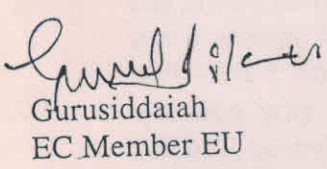 Gurusiddaiah
EC Member EU